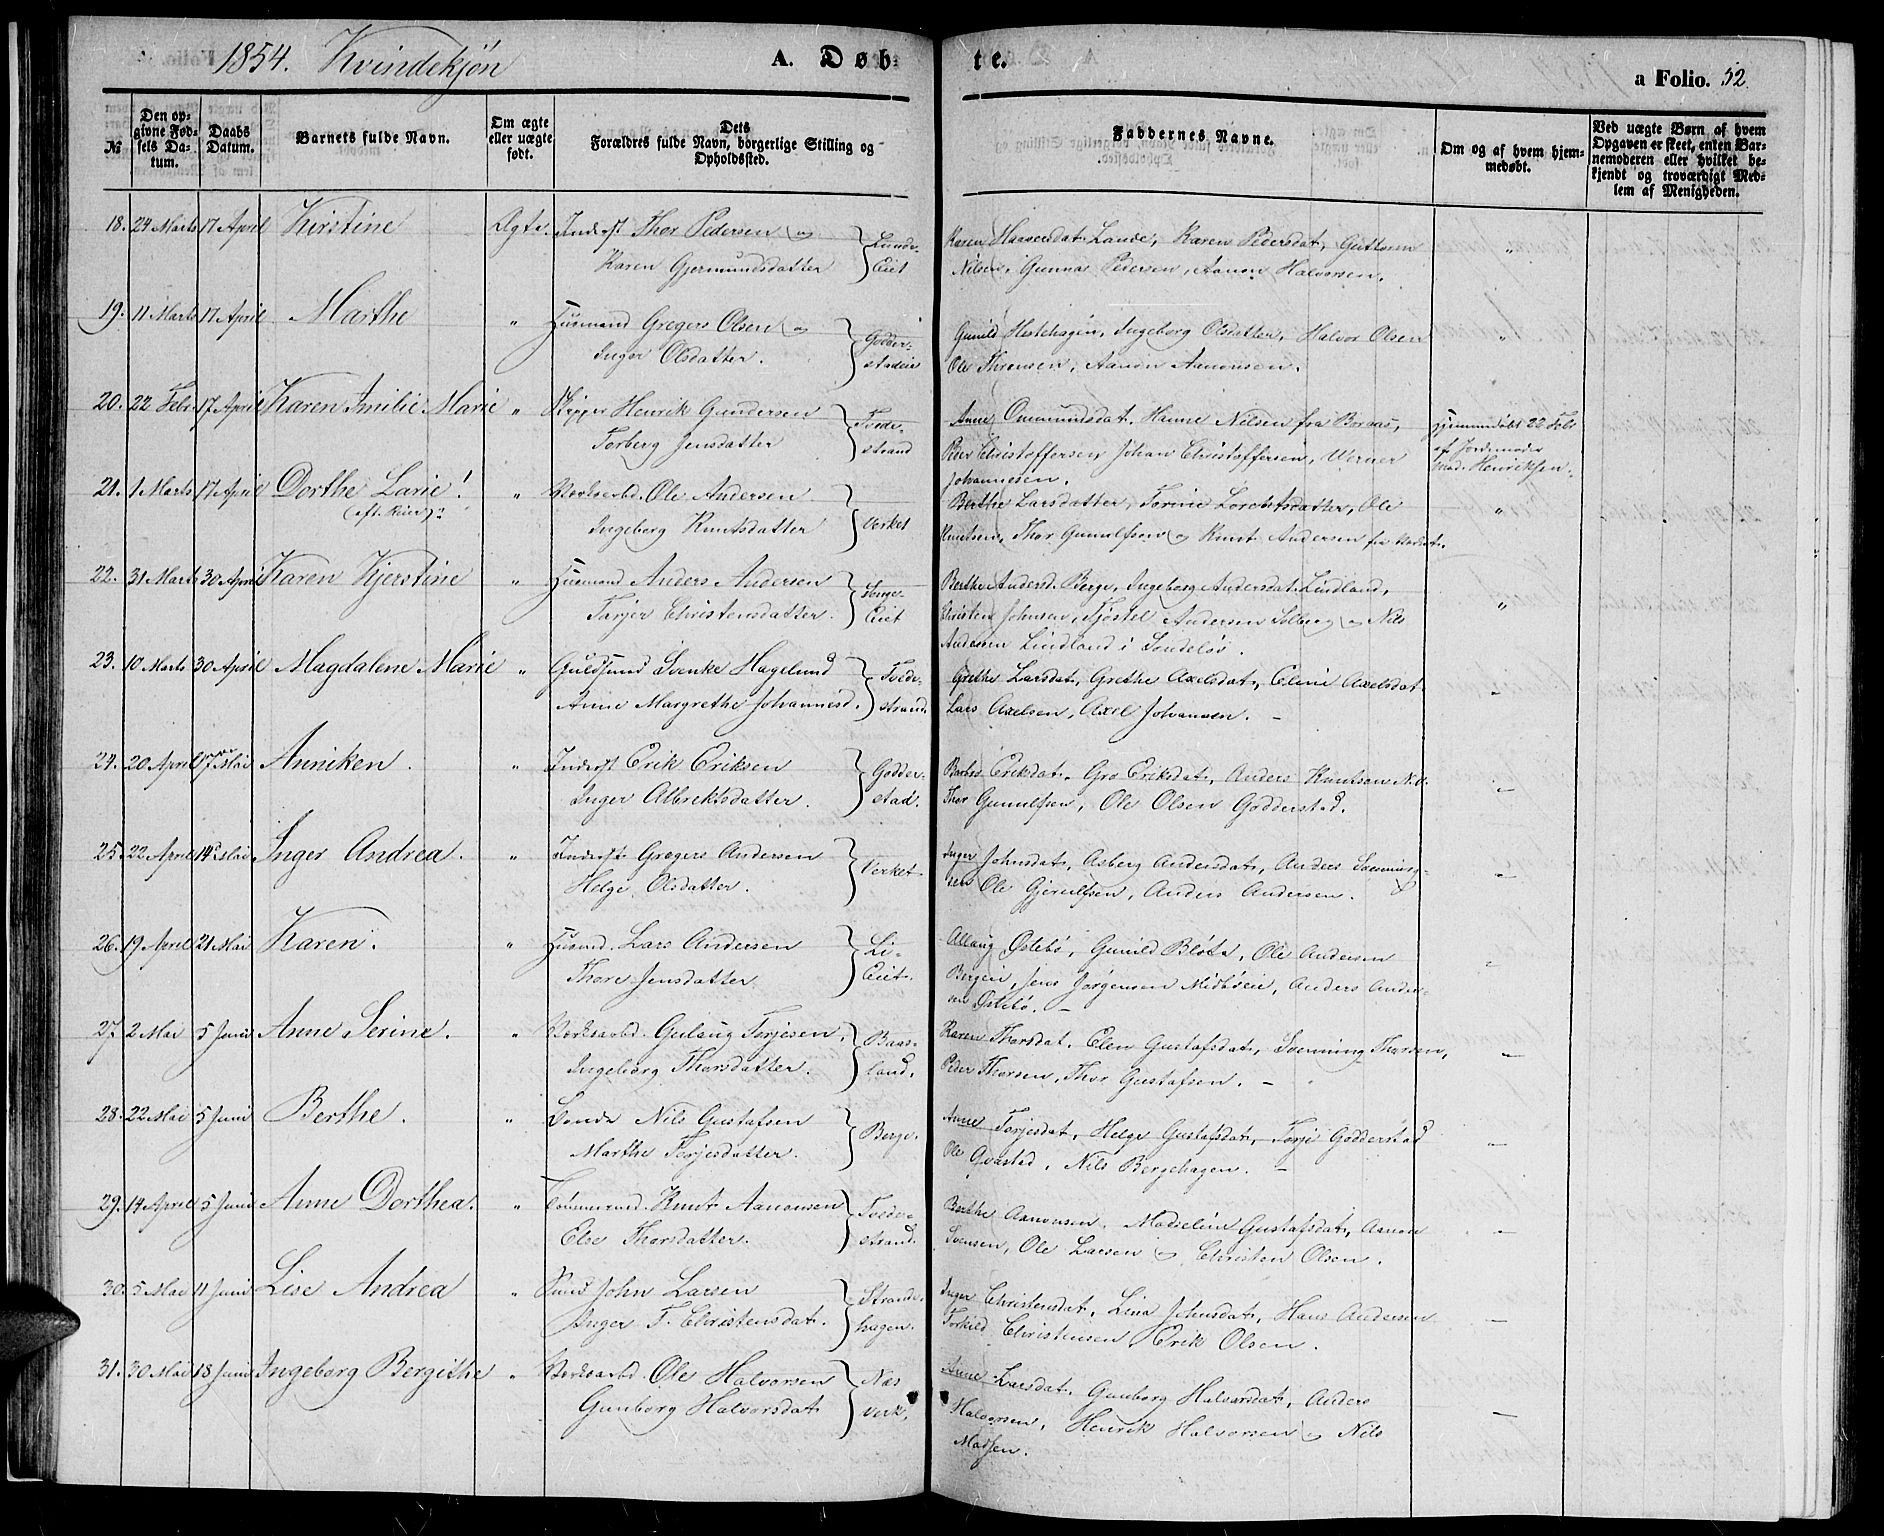 1854. Kvindekjøn A. Døb te. a Folio. 52
№ Den opgivne Fødsels Datum. Daabs Datum. Barnets fulde Navn. Om ægte eller uægte født. Dets Forældres fulde Navn, borgerlige Stilling og Opholdssted. Faddernes Navne. Om og af hvem hjemmedøbt. Ved uægte Børn af hvem Opgaven er skeet, enten Barnemoderen eller hvilket bekjendt og troværdigt Medlem af Menigheden.
18. 24 Marts 17 April Kirstine Ægte. Inderst Thor Pedersen og Lunde- Karen Haaversdat. Lande, Karen Pedersdat, Guttorm "
Karen Gjermundsdatter Eiet Nilsen, Gunnar Pedersen, Aanon Halvorsen.
19. 11 Marts 17 April Marthe " Husmand Gregers Olsen og Godder- Gunild Hestehagen, Ingeborg Olsdatter, Halvor Olsen "
Inger Olsdatter. stadeie Ole Thronsen, Aanon Aanonsen.
20. 22 Febr. 17 April Karen Amilie Marie " Skipper Henrik Gundersen Tvede- Anne Ommundsdat. Hanne Nilsen fra Boraas, Hjemmedøbt 22 Febr
Torberg Jensdatter strand Peder Christoffersen Johan Christoffersen, Werner af Jordemoder
Johannesen. Mad. Henriksen.
21. 1 Marts 17 April Dorthe Larie! " Verksarbd. Ole Andersen Berthe Larsdatter, Torine Lorentsdatter, Ole "
(eft. Reier)? Ingeborg Knutsdatter Verket Knutsen, Thor Gunulfsen og Knut Andersen fra Verket.
22. 31 Marts 30 April Karen Kjerstine " Husmand Anders Andersen Songe- Berthe Andersd. Berge, Ingeborg Andersdat. Lindland,
Tarjer Christensdatter. Eiet Christen Johnsen, Tjøstel Andersen Solberg og Nils "
Andersen Lindland i Søndeløs.
23. 10 Marts 30 April Magdalene Marie " Guldsmed Svenke Hagelund Tvede- Grethe Larsdat, Grethe Axelsdat, Eline Axelsdat "
Anne Margrethe Johannesd. strand. Lars Axelsen, Axel Johansen. –
24. 20 April 17 Mai Anniken. " Inderst Erik Eriksen Godder- Barbro Eriksdat. Gro Eriksdat, Anders Knutsen
Inger Albrektsdatter. stad. Thor Gunulfsen, Ole Olsen Godderstad. "
25. 22 April 14 Mai Inger Andrea. " Inderst Gregers Andersen Verket. Inger Johnsdat, Asberg Andersdat, Anders Svenning- "
Helge Olsdatter. sen Ole Gjerulfsen, Anders Andersen.
26. 19 April 21 Mai Karen. " Husmd. Lars Andersen Li- Allaug Østebø, Gunild Bløta, Ole Andersen "
Thore Jensdatter Eiet. Bergeie, Jens Jørgensen Midbøeie, Anders Ander-
sen Østebø. –
27 2 Mai 5 Juni Anne Serine. " Verksarbd. Gulaug Terjesen, Baas- Karen Thorsdat. Elen Gustafsdat, Svenning Thorsen, "
Ingeborg Thorsdatter. land. Peder Thorsen, Thor Gustafsen. –
28. 22 Mai 5 Juni Berthe. " Bonde Nils Gustafsen Berge. Anne Terjesdat, Helge Gustafsdat, Terje Godderstad "
Marthe Terjesdatter. Ole Qvastad, Nils Bergehagen. –
29. 14 April 5 Juni Anne Dorthea. " Tømmermd. Knut Aanonsen Tvede- Berthe Aanonsen. Madseline Gustafsdat, Aanon "
Else Thorsdatter. strand. Svensen, Ole Larsen og Christen Olsen.
30. 5 Mai 11 Juni Lise Andrea " Smed John Larsen Strande- Inger Christensdat, Lina Johnsdat, Hans Andersen "
Inger T. Christensdat. hagen. Torkild Christensen Erik Olsen.
31. 30 Mai 18 Juni Ingeborg Bergithe " Verksarbd. Ole Halvorsen Næs Anne Larsdat. Gunborg Halvorsdat, Anders
Gunborg Halvorsdat verk. Halvorsen, Henrik Halvorsen og Nils "
Madsen.